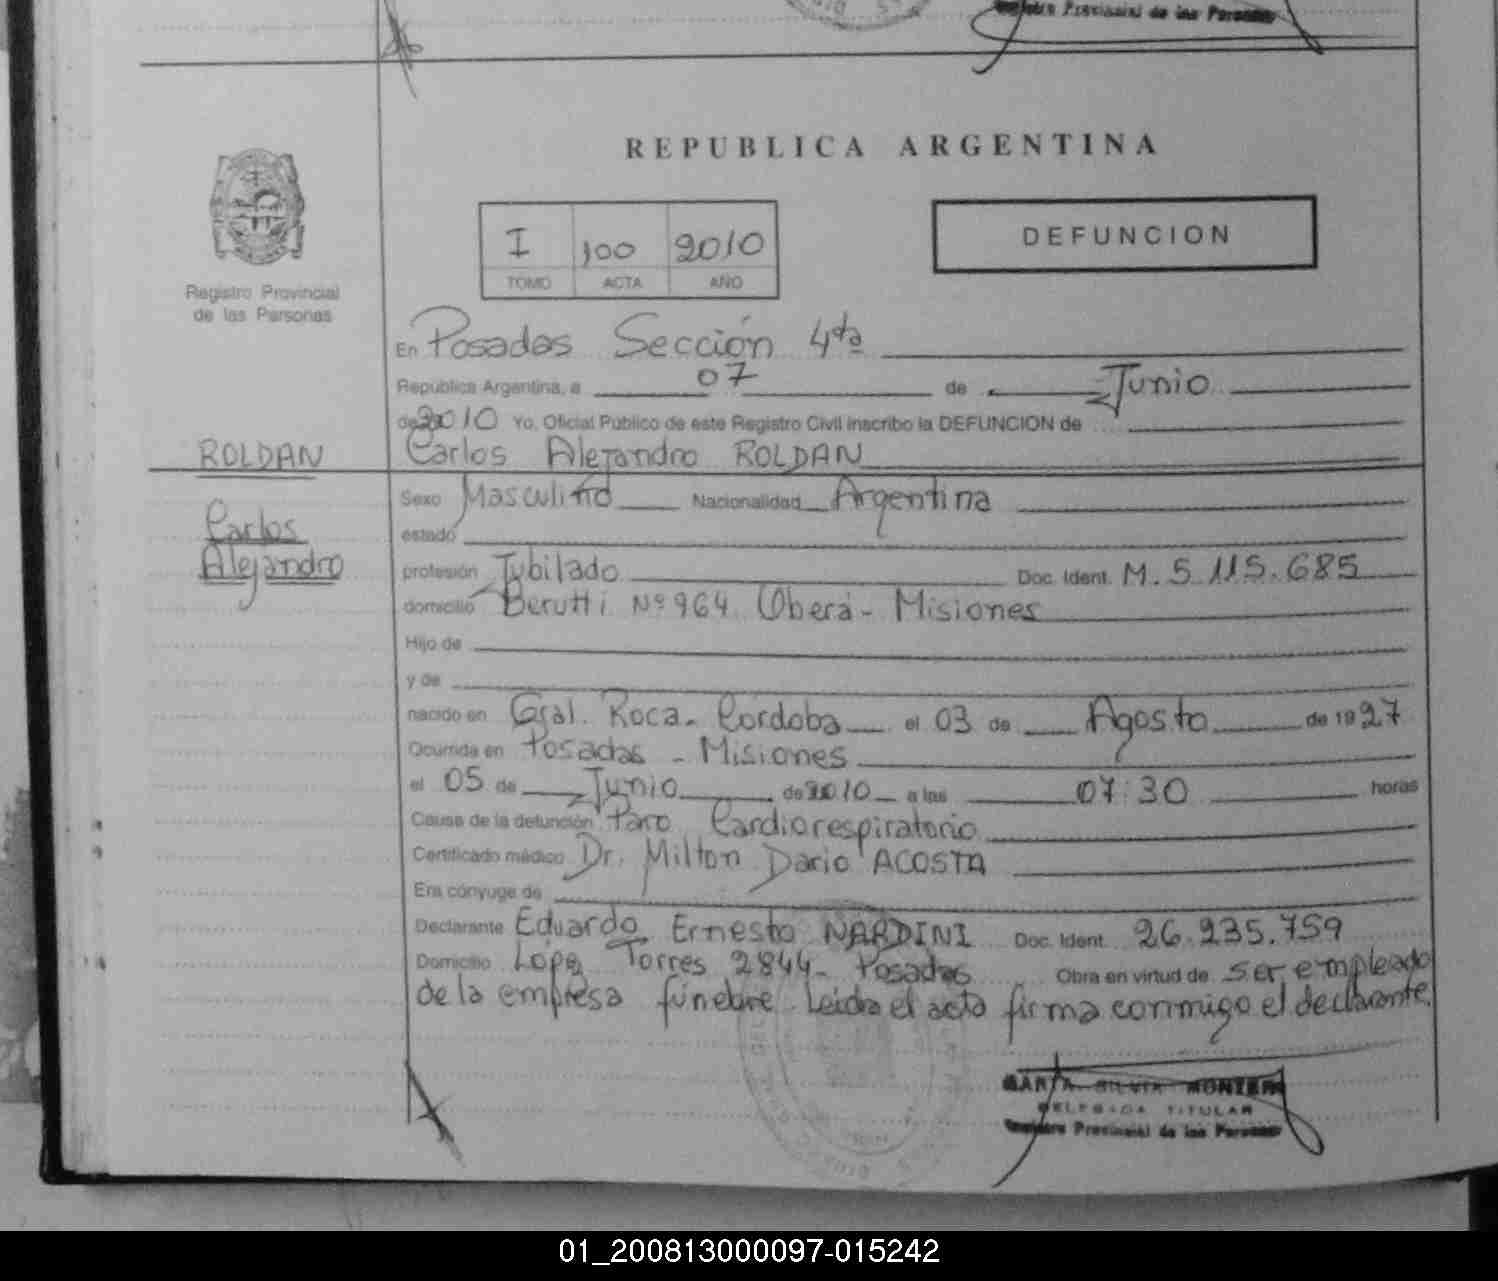 Registro Provincial de las Personas
REPUBLICA ARGENTINA
I 100 2010
TOMO ACTA AÑO
DEFUNCION
Registro Provincial
de las Personas
En Posadas Sección 4ta
República Argentina, a 07 de Junio
de 2010 Yo, Oficial Público de este Registro Civil inscribo la DEFUNCION de
ROLDAN
Carlos Alejandro ROLDAN
Carlos
Alejandro
Sexo Masculino Nacionalidad Argentina
estado
profesión Jubilado Doc. Ident. M. 5.115.685
domicilio Berutti Nº 964 Oberá - Misiones
Hijo de
y de
nacido en Gral. Roca - Cordoba el 03 de Agosto de 1927
Ocurrida en Posadas - Misiones
el 05 de Junio de 2010 a las 07:30 horas
Causa de la defunción Paro Cardiorespiratorio
Certificado médico Dr. Milton Dario ACOSTA
Era cónyuge de
Declarante Eduardo Ernesto NARDINI Doc. Ident. 26.235.759
Domicilio Lópz Torres 2844 - Posadas Obra en virtud de ser empleado
de la empresa fúnebre. Leida el acta firma conmigo el declarante.
MARTA SILVIA
DELEGADA TITULAR
Registro Provincial de las Personas
01_200813000097-015242